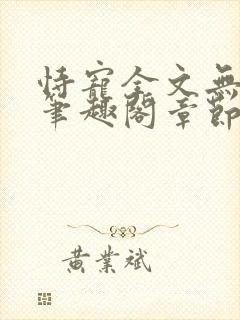 恃寵全文無
筆趣閣章節
黃業斌